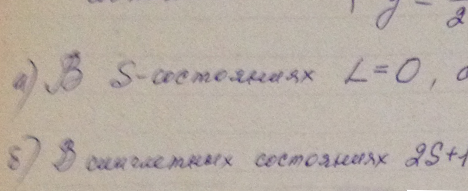 y = 2
а) В S-состояниях L=0,
б) В синглетных состояниях 2S+1